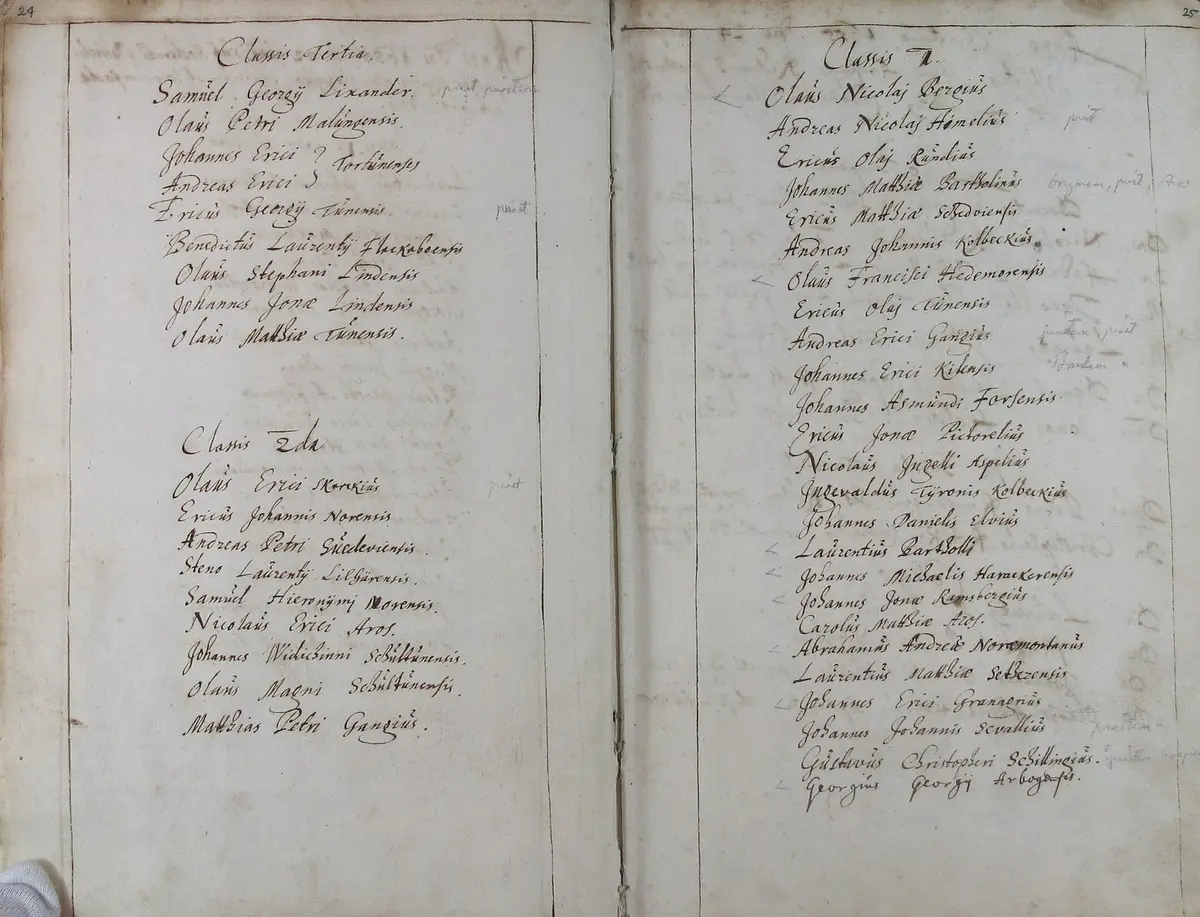 24
Classis Tertia.
Samuel Georgij Lixander.
Olaus Petri Malungensis.
Johannes Erici } Tortunenses
Andreas Erici }
Ericus Georgij Tunensis
Benedictus Laurentij Flackeboensis
Olaus Stephani Lindensis
Johannes Jonæ Lindensis
Olaus Matthiæ Tunensis.
Classis 2da
Olaus Erici
Ericus Johannis Norensis
Andreas Petri
Steno Laurentij
Samuel Hieronymj Norensis.
Nicolaus Erici Aros.
Johannes Widichinni Schultunensis.
Olaus Magni Schultunensis.
Matthias Petri Gangius.
25
Classis 1.
Olaus Nicolaj Bergius
Andreas Nicolaj Homelius
Ericus Olaj Rundius
Johannes Matthiæ Bartholinus
Ericus Matthiæ Schedviensis
Andreas Johannis Kolbeckius.
Olaus Francisci Hedemorensis
Ericus Olaj Tunensis
Andreas Erici Gangius
Johannes Erici Kilensis
Johannes Asmundi Forsensis
Ericus Jonæ Pictorelius
Nicolaus Ingelli Aspelius
Ingevaldus Tyronis Kolbeckius
Johannes Danielis Elvius
Laurentius Bartholli
Johannes Michaelis Harackerensis
Johannes Jonæ Ramsbergius
Carolus Matthiæ Aros.
Abrahamus Andreæ Noræmontanus
Laurentius Matthiæ
Johannes Erici Granagrius
Johannes Johannis Sevallius
Gustavus Christopheri Schillingius.
Georgius Georgij Arbogensis.